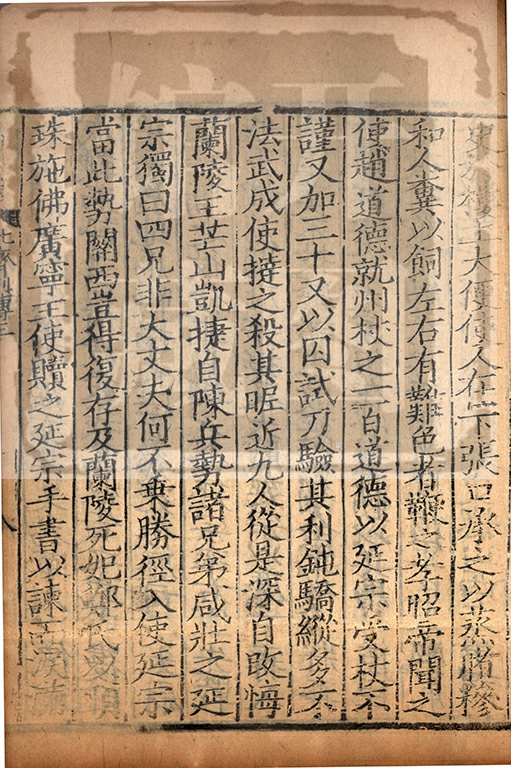 史於樓上大便使人在下張口承之以蒸猪糝
和人糞以飼左右有難色者鞭之孝昭帝聞之
使趙道德就州杖之一百道德以延宗受杖不
謹又加三十又以囚試刀驗其利鈍驕縱多不
法武成使撻之殺其昵近九人從是深自改悔
蘭陵王芒山凱捷自陳兵勢諸兄弟咸壯之延
宗獨曰四兄非大丈夫何不乗勝徑入使延宗
當此勢關西豈得復存及蘭陵死妃鄭氏以頸
珠施佛廣寧王使贖之延宗手書以諫而淚滿